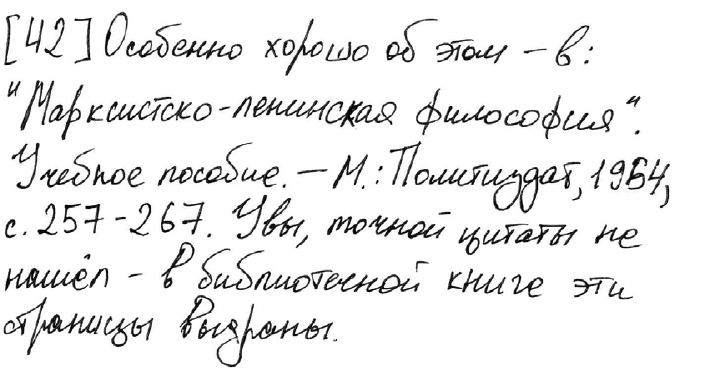 [42] Особенно хорошо об этом – в:
"Марксистско-ленинская философия".
Учебное пособие. – М.: Политиздат, 1964,
с. 257-267. Увы, точной цитаты не
нашёл – в библиотечной книге эти
страницы выдраны.